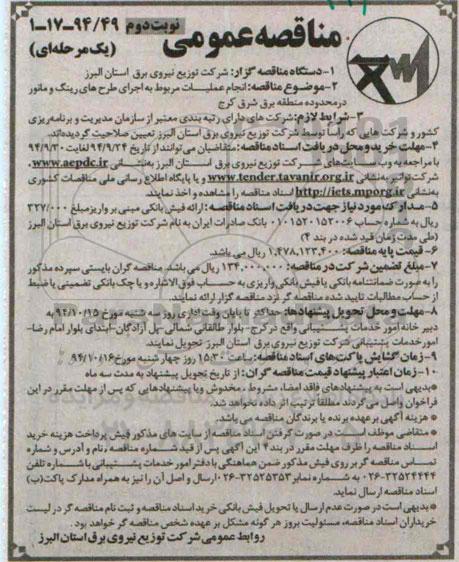 مناقصه عمومی
نوبت دوم ۹۴/۴۹-۱۷-۱
(یک مرحله‌ای)
۱-دستگاه مناقصه گزار: شرکت توزیع نیروی برق استان البرز
۲-موضوع مناقصه: انجام عملیات مربوط به اجرای طرح های رینگ و مانور
درمحدوده منطقه برق شرق کرج
۳-شرایط لازم: شرکت های دارای رتبه بندی معتبر از سازمان مدیریت و برنامه‌ریزی
کشور و شرکت هایی که رأسا توسط شرکت توزیع نیروی برق استان البرز تعیین صلاحیت گردیده‌اند.
۴-مهلت خرید و محل دریافت اسناد مناقصه: متقاضیان می توانند از تاریخ ۹۴/۹/۲۴ لغایت ۹۴/۹/۳۰
با مراجعه به وب سایت‌های شرکت توزیع نیروی برق استان البرز به‌نشانی www.aepdc.ir،
شرکت توانیر به‌نشانی www.tender.tavanir.org.ir و یا پایگاه اطلاع رسانی ملی مناقصات کشوری
به‌نشانی http://iets.mporg.ir اسناد مناقصه را مشاهده و اخذ نمایند.
۵-مدارک مورد نیاز جهت دریافت اسناد مناقصه: ارائه فیش بانکی مبنی بر واریز مبلغ ۳۲۷/۰۰۰
ریال به شماره حساب ۰۱۰۱۵۲۰۱۵۳۰۰۶ بانک صادرات ایران به نام شرکت توزیع نیروی برق استان البرز
(طی مدت زمان قید شده در بند ۴)
۶- قیمت پایه مناقصه: ۱,۴۷۸,۱۲۳,۴۰۰ ریال می باشد.
۷-مبلغ تضمین شرکت در مناقصه: ۱۳۴,۰۰۰,۰۰۰ ریال می باشد. مناقصه گران بایستی سپرده مذکور
را به صورت ضمانتنامه بانکی یا فیش بانکی واریزی به حساب فوق‌الاشاره و یا چک بانکی تضمینی یا ضبط
از حساب مطالبات تایید شده مناقصه گر نزد مناقصه گزار ارائه نمایند.
۸-مهلت و محل تحویل پیشنهادها: حداکثر تا پایان وقت اداری روز سه شنبه مورخ ۹۴/۱۰/۱۵ به
دبیر خانه امور خدمات پشتیبانی واقع در کرج-بلوار طالقانی شمالی-پل آزادگان-ابتدای بلوار امام رضا-
امور خدمات پشتیبانی شرکت توزیع نیروی برق استان البرز تحویل نمایند.
۹-زمان گشایش پاکت‌های اسناد مناقصه: ساعت ۱۵:۳۰ روز چهار شنبه مورخ ۹۴/۱۰/۱۶
۱۰-زمان اعتبار پیشنهاد قیمت مناقصه گران: از تاریخ تحویل پیشنهاد به مدت سه ماه
*بدیهی است به پیشنهادهای فاقد امضا، مشروط، مخدوش ویا پیشنهادهایی که پس از مهلت مقرر در این
فراخوان واصل می گردند مطلقاً ترتیب اثر داده نخواهد شد.
* هزینه آگهی بر عهده برنده یا برندگان مناقصه می باشد
* متقاضی موظف است در صورت گرفتن اسناد مناقصه از سایت های مذکور فیش پرداخت هزینه خرید
اسناد مناقصه را ظرف مهلت مقرر در بند ۴ این آگهی پس از قید شماره مناقصه، نام و آدرس و شماره
تماس مناقصه گر بر روی فیش مذکور ضمن هماهنگی با دفتر امور خدمات پشتیبانی با شماره تلفن
۰۲۶-۳۲۵۲۴۴۴۴ به شماره نمابر ۰۲۶-۳۲۵۲۵۳۵۳ ارسال و اصل آن را نیز به همراه مدارک پاکت(ب)
اسناد مناقصه ارسال نماید.
*بدیهی است در صورت عدم ارسال یا تحویل فیش بانکی خرید اسناد مناقصه و ثبت نام مناقصه گر در لیست
خریداران اسناد مناقصه، مسئولیت بروز هر گونه مشکل بر عهده شخص مناقصه گر خواهد بود.
روابط عمومی شرکت توزیع نیروی برق استان البرز